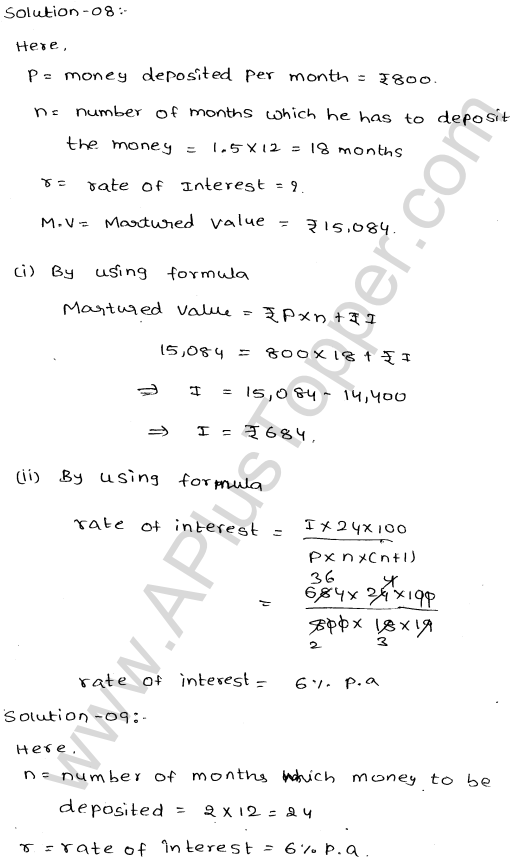 Solution-08:-
Here,
P = money deposited per month = ₹800.
n = number of months which he has to deposit
the money = 1.5 × 12 = 18 months
r = rate of Interest = ?
M.V = Martured value = ₹15,084.
(i) By using formula
Martured value = ₹P×n + ₹I
15,084 = 800 × 18 + ₹I
⇒ I = 15,084 - 14,400
⇒ I = ₹684.
(ii) By using formula
rate of interest = I × 24 × 100
P × n × (n+1)
36 4
= 684 × 24 × 100
800 × 18 × 19
2 3
rate of interest = 6% P.a
Solution-09:-
Here,
n = number of months which money to be
deposited = 2 × 12 = 24
r = rate of interest = 6% P.a.
www.APlusTopper.com